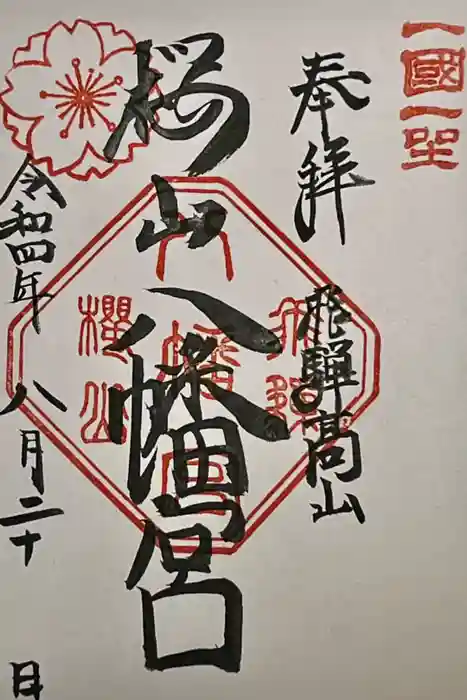 一國一社
奉拝
飛騨高山
桜山八幡宮
飛騨
八幡宮
櫻山
令和四年八月二十日